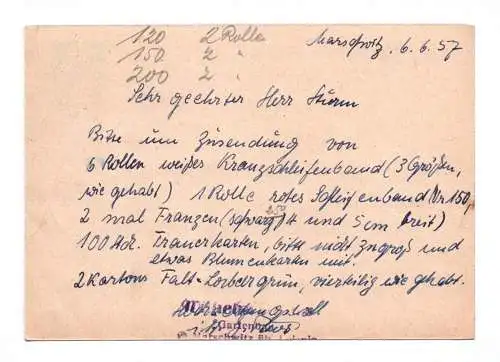 120 2 Rolle
150 2 "
200 2 "
Marschwitz, 6.6.57
Sehr geehrter Herr Sturm
Bitte um Zusendung von
6 Rollen weißes Kranzschleifenband (3 Größen,
wie gehabt) 1 Rolle rotes Schleifenband Nr 150,
2 mal Franzen (schwarz) 4 und 5 cm breit)
100 Trauerkarten, bitte nicht zu groß und
etwas Blumenkarten mit.
2 Kartons Falt-Lorbeergrün, vierteilig wie gehabt.
Gartenb